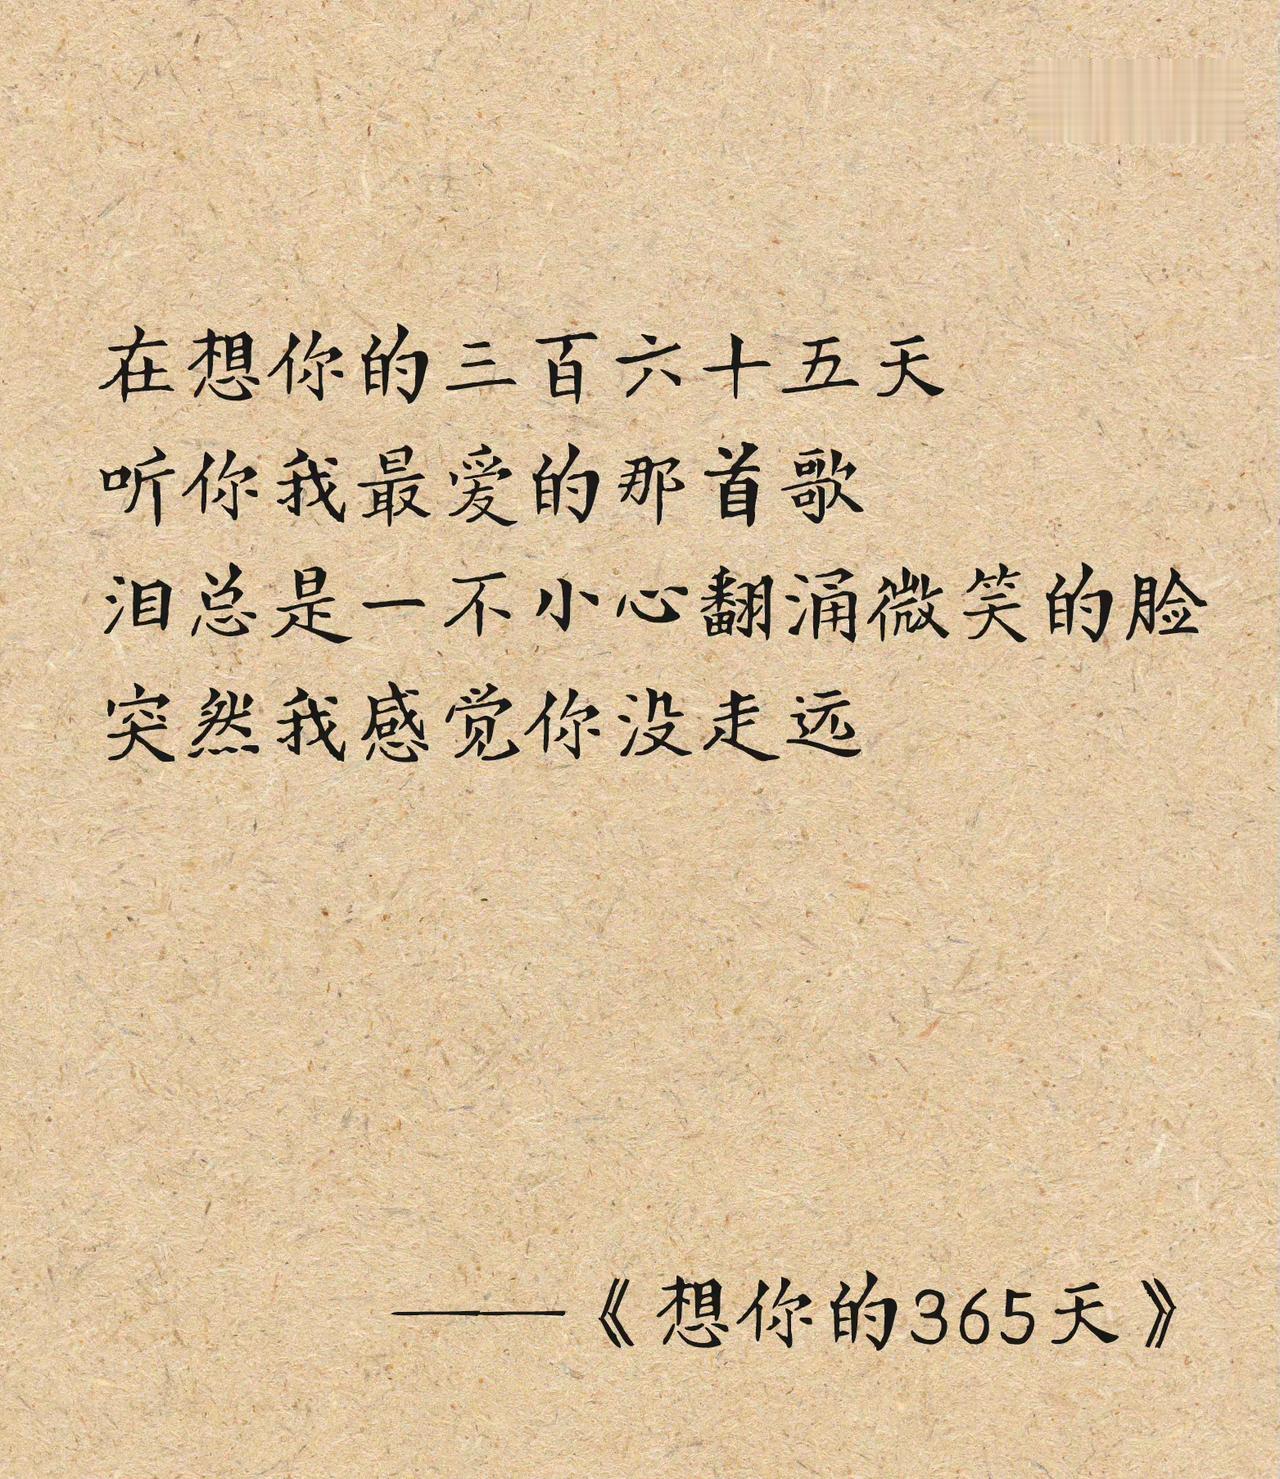 在想你的三百六十五天
听你我最爱的那首歌
泪总是一不小心翻涌微笑的脸
突然我感觉你没走远
——《想你的365天》